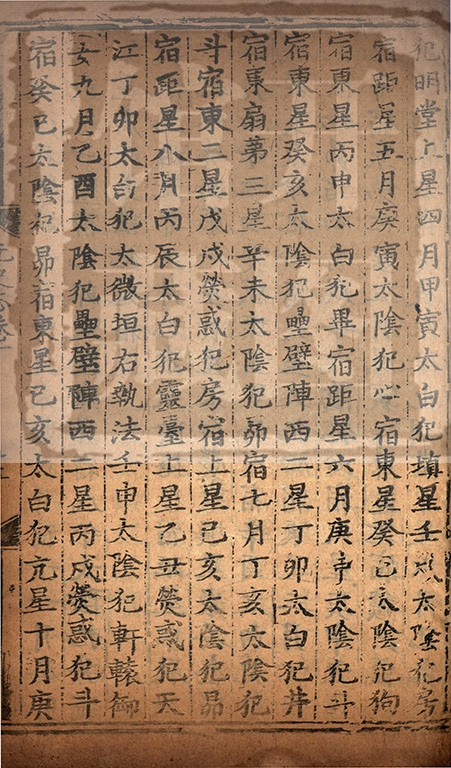 犯明堂上星四月甲寅太白犯填星壬太陰犯房
宿距星五月庚寅太陰犯心宿東星癸巳太陰犯狗
宿東星丙申太白犯畢宿距星六月庚申太陰犯斗
宿東星癸亥太陰犯壘壁陣西二星丁卯太白犯井
宿東扇第三星辛未太陰犯昴宿七月丁亥太陰犯
斗宿東二星戊戌熒惑犯房宿上星己亥太陰犯昴
宿距星八月丙辰太白犯靈臺上星乙丑熒惑犯天
江丁卯太白犯太微垣右執法壬申太陰犯軒轅御
女九月乙酉太陰犯壘壁陣西二星丙戌熒惑犯斗
宿癸巳太陰犯昴宿東星己亥太白犯亢星十月庚